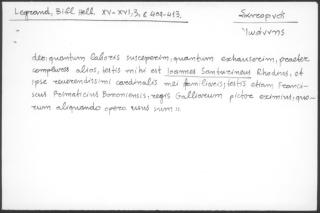 Legrand, Bibl. Hell. XV-XVI, 3, σ 409-413.
Σανταρινός
Ἰωάννης
"
"
deo; quantum laboris susceperim, quantum exhauserim, praeter
complures alios, testis mihi est Ioannes Santarineus Rhodius, et
ipse reverendissimi cardinalis mei familiaris; testis etiam Franci-
scus Primaticius Bononiensis, regis Galliarum pictor eximius, quo-
rum aliquando opera usus sum.